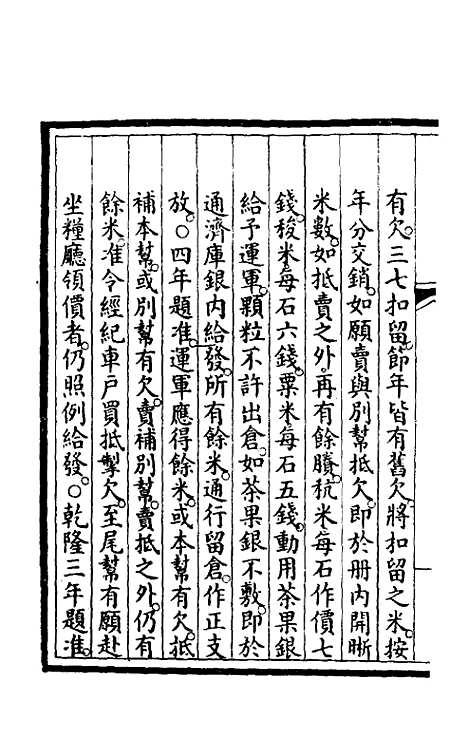 有欠。三七扣留。節年皆有舊欠。將扣留之米。按
年分交銷。如願賣與別幫抵欠。即於册內開晰
米數。如抵賣之外。再有餘賸。秔米每石作價七
錢。稄米每石六錢。粟米每石五錢。動用茶果銀
給予運軍。顆粒不許出倉。如茶果銀不敷。即於
通濟庫銀內給發。所有餘米。通行留倉。作正支
放。○四年題准。運軍應得餘米。或本幫有欠。抵
補本幫。或別幫有欠。賣補別幫。賣抵之外。仍有
餘米。准令經紀車戶買抵掣欠。至尾幫有願赴
坐糧廳領價者。仍照例給發。○乾隆三年題准。